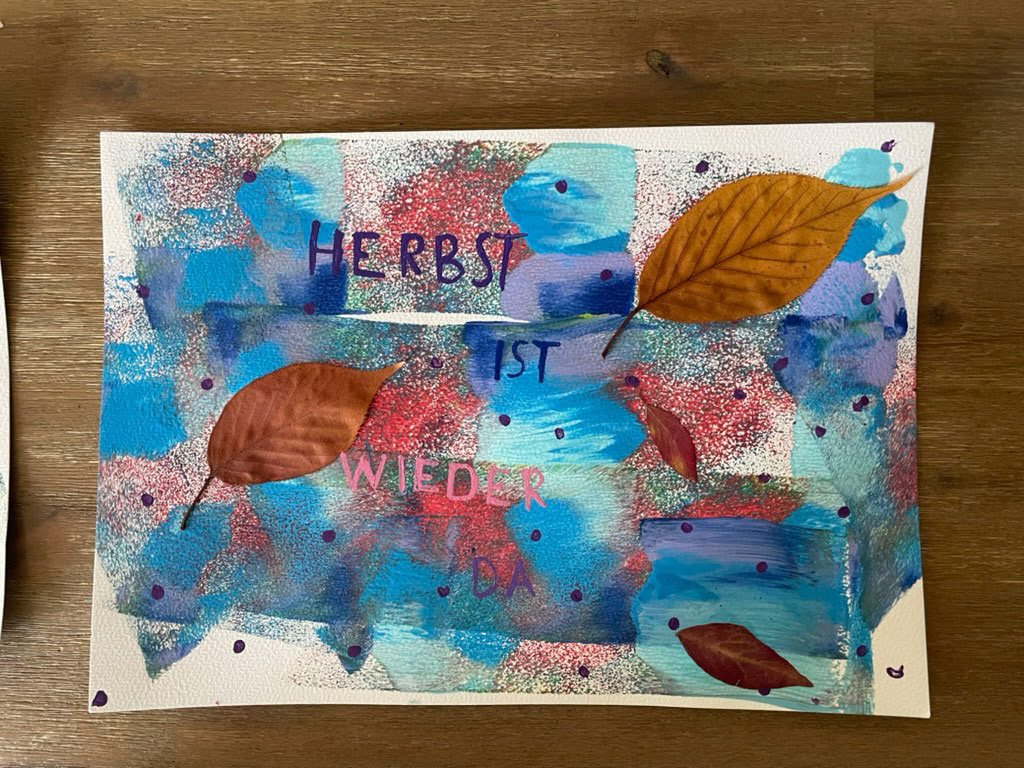 HERBST
IST
WIEDER
DA